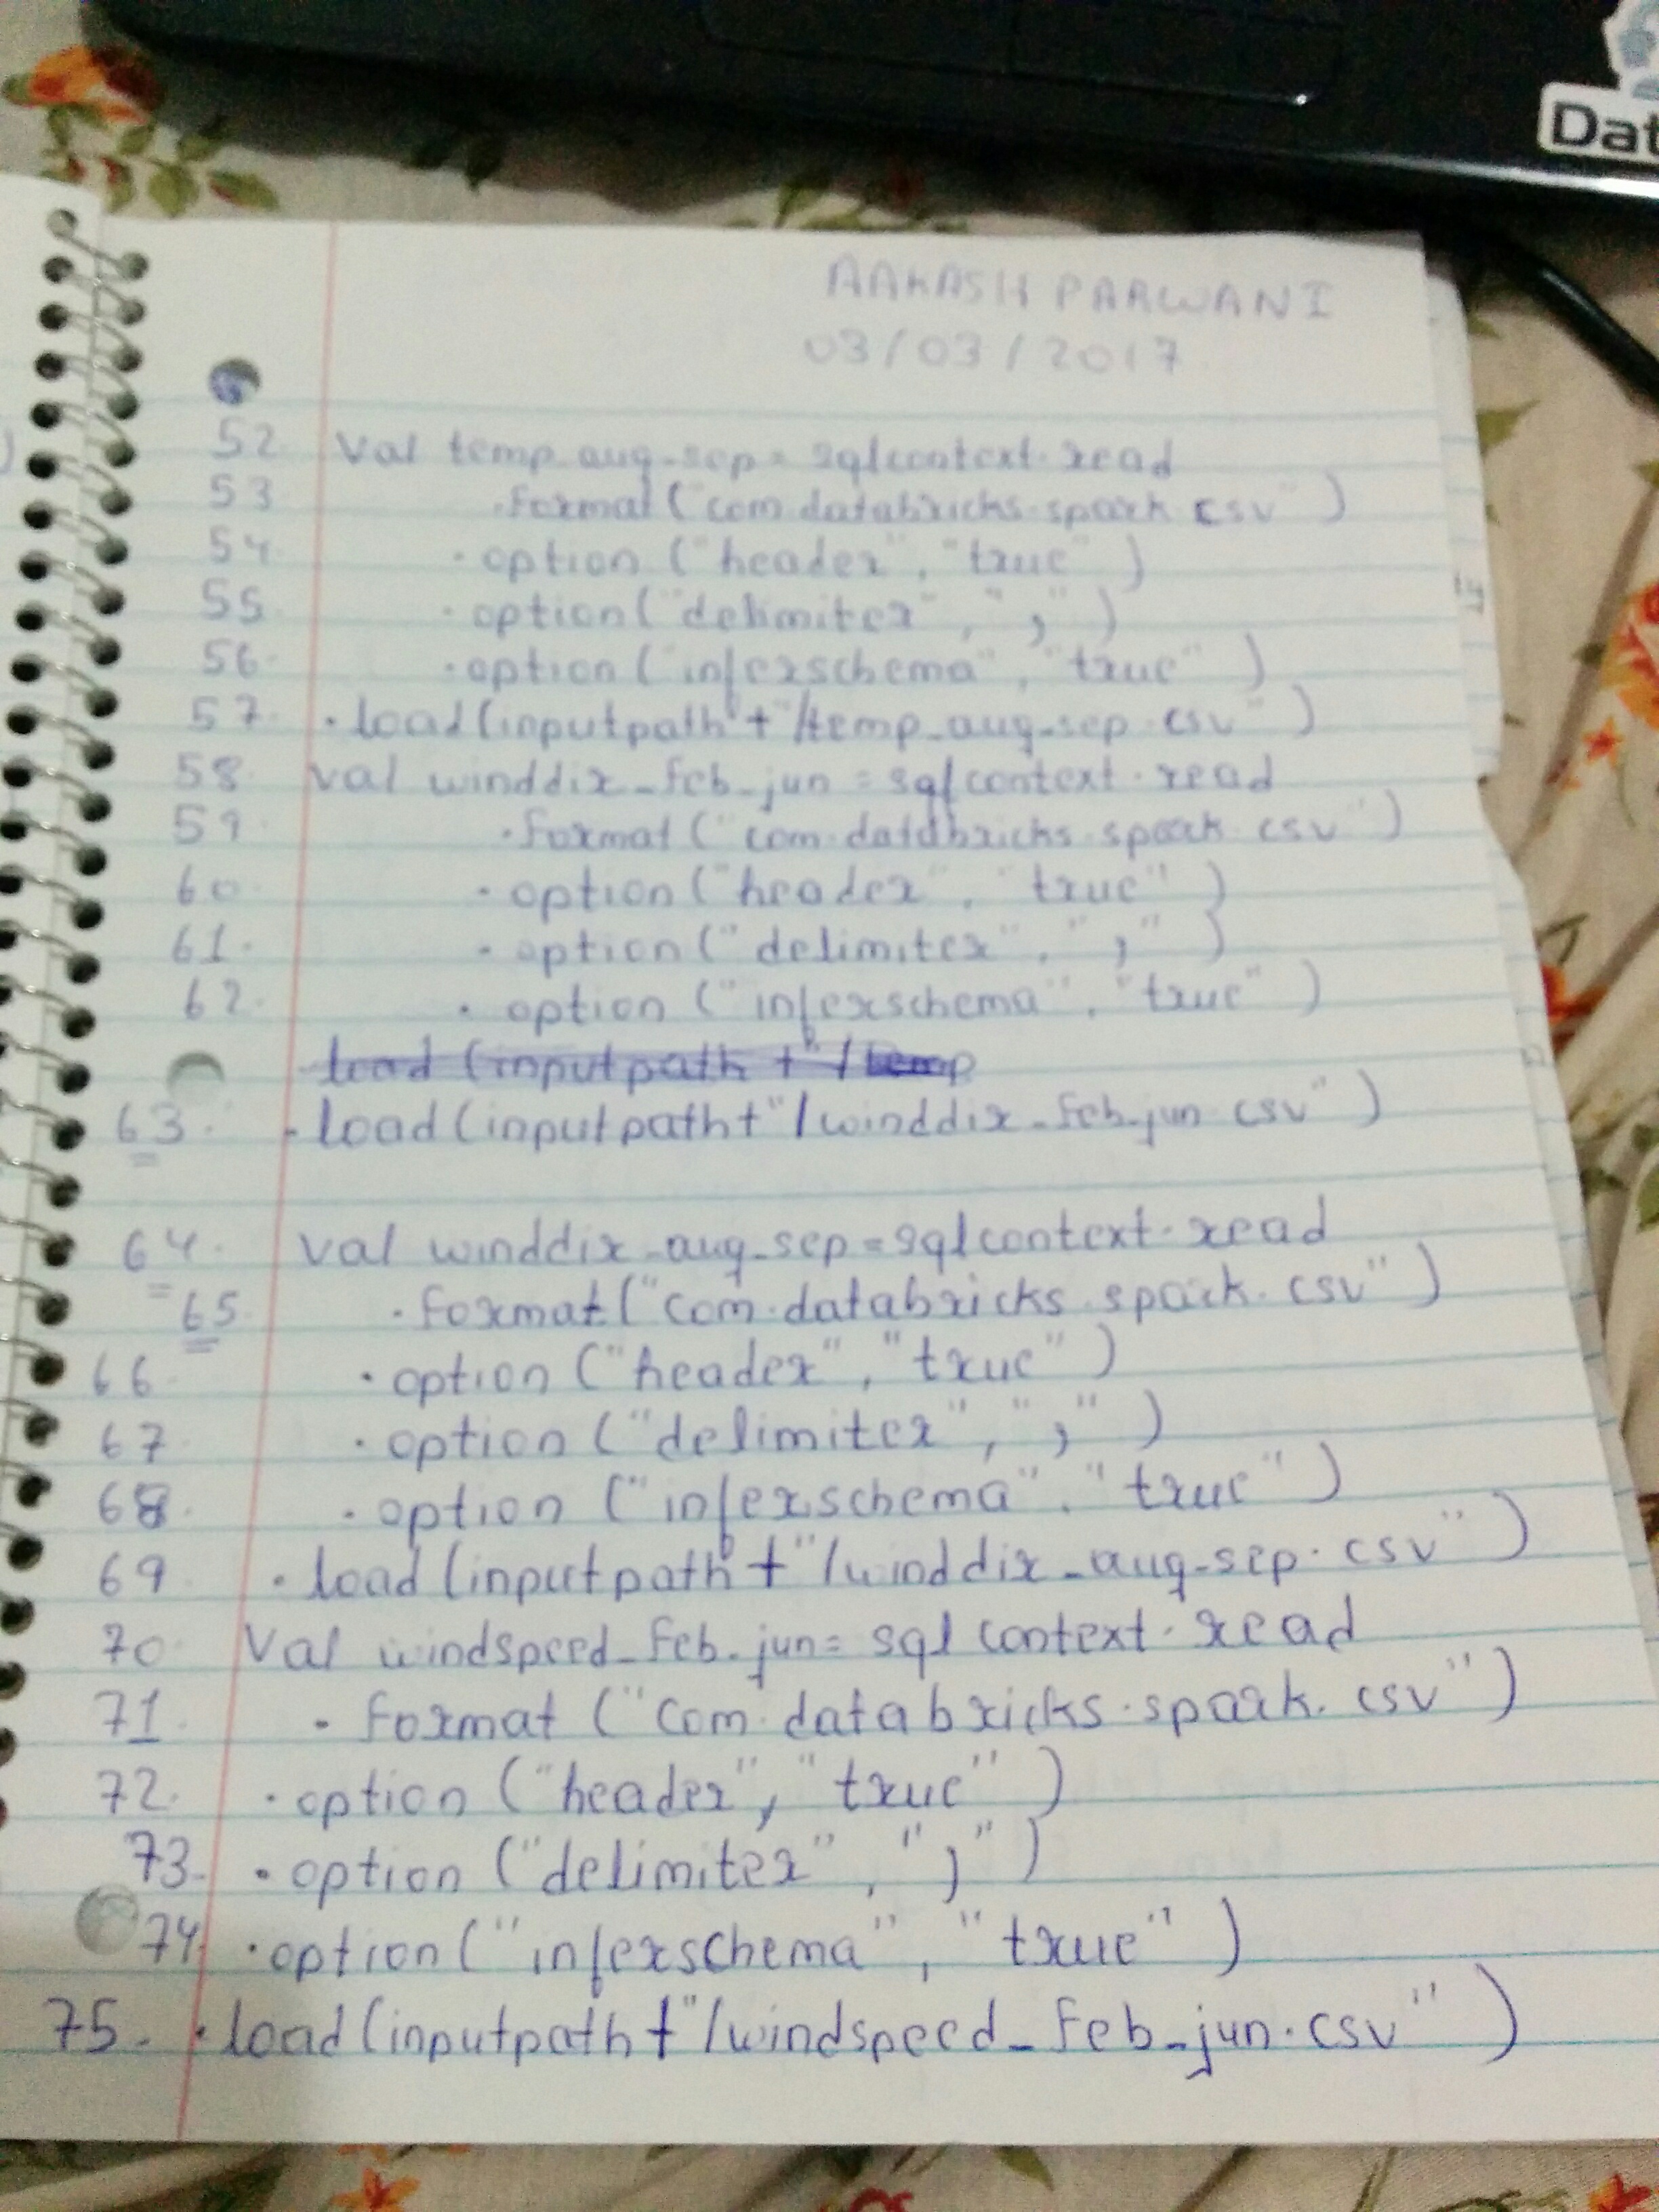 Dat
AAKASH PARWANI
03/03/2017
52 Val temp_aug_sep = sqlcontext.read
53 .format("com.databricks.spark.csv")
54. .option("header", "true")
55. .option("delimiter", ";")
56. .option("inferschema", "true")
57. .load(inputpath + "/temp_aug_sep.csv")
58. val winddir_feb_jun = sqlcontext.read
59. .format("com.databricks.spark.csv")
60. .option("header", "true")
61. .option("delimiter", ";")
62. .option("inferschema", "true")
load(inputpath + "/temp
63. .load(inputpath + "/winddir_feb_jun.csv")
64. val winddir_aug_sep = sqlcontext.read
65. .format("com.databricks.spark.csv")
66. .option("header", "true")
67. .option("delimiter", ";")
68. .option("inferschema", "true")
69. .load(inputpath + "/winddir_aug_sep.csv")
70. Val windspeed_feb_jun = sqlcontext.read
71. .format("com.databricks.spark.csv")
72. .option("header", "true")
73. .option("delimiter", ";")
74. .option("inferschema", "true")
75. .load(inputpath + "/windspeed_feb_jun.csv")